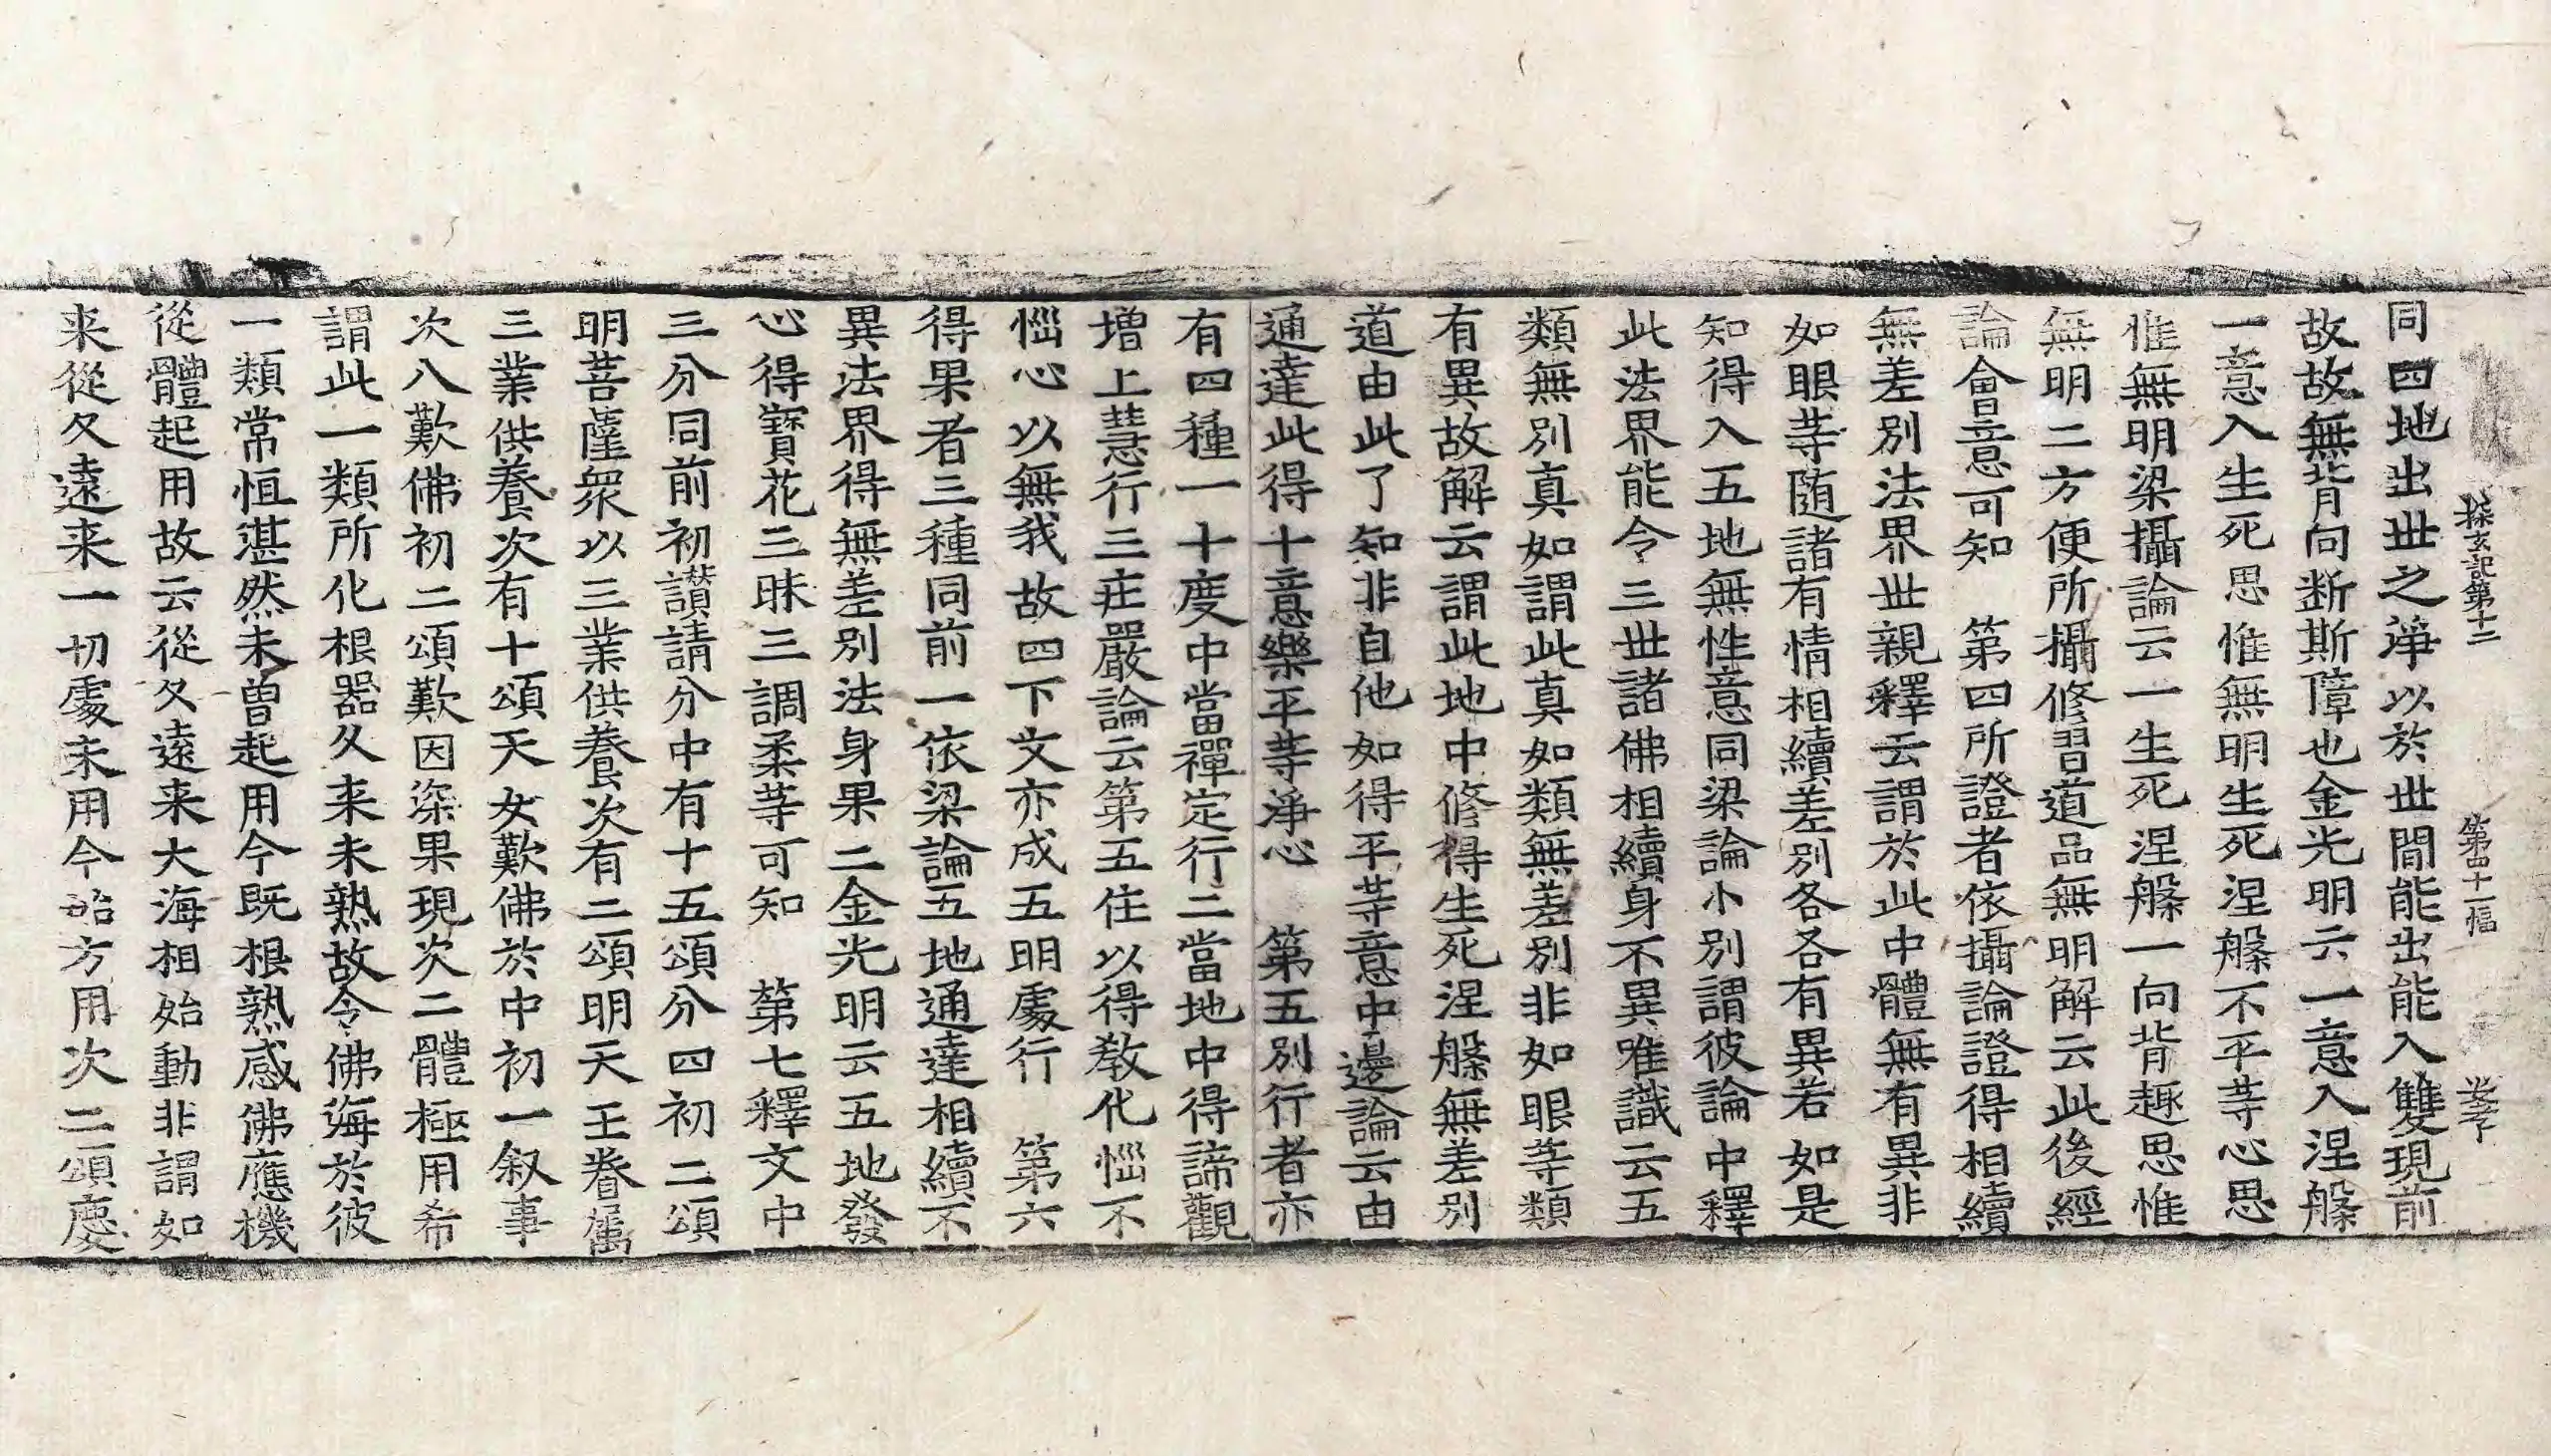 探玄記第十二 第四十一幅
同四地出世之淨以於世間能出能入雙現前
故故無背向断斯障也金光明云一意入涅槃
一意入生死思惟無明生死涅槃不平等心思
惟無明梁攝論云一生死涅槃一向背趣思惟
無明二方便所攝修習道品無明解云此後經
論會意可知 第四所證者依攝論證得相續
無差别法界世親釋云謂於此中體無有異非
如眼等随諸有情相續差别各各有異若如是
知得入五地無性意同梁論小别謂彼論中釋
此法界能令三世諸佛相續身不異唯識云五
類無别真如謂此真如類無差别非如眼等類
有異故解云謂此地中修得生死涅槃無差别
道由此了知非自他如得平等意中邊論云由
通達此得十意樂平等淨心 第五别行者亦
有四種一十度中當禪定行二當地中得諦觀
增上慧行三莊嚴論云第五住以得教化惱不
惱心以無我故四下文亦成五明處行 第六
得果者三種同前一依梁論五地通達相續不
異法界得無差别法身果二金光明云五地發
心得寶花三昧三調柔等可知 第七釋文中
三分同前初讃請分中有十五頌分四初二頌
明菩薩衆以三業供養次有二頌明天王眷屬
三業供養次有十頌天女歎佛於中初一叙事
次八歎佛初二頌歎因深果現次二體極用希
謂此一類所化根器久来未熟故令佛海於彼
一類常恒湛然未曽起用今既根熟感佛應機
從體起用故云從久遠来大海相始動非謂如
来從久遠来一切處未用今始方用次二頌慶